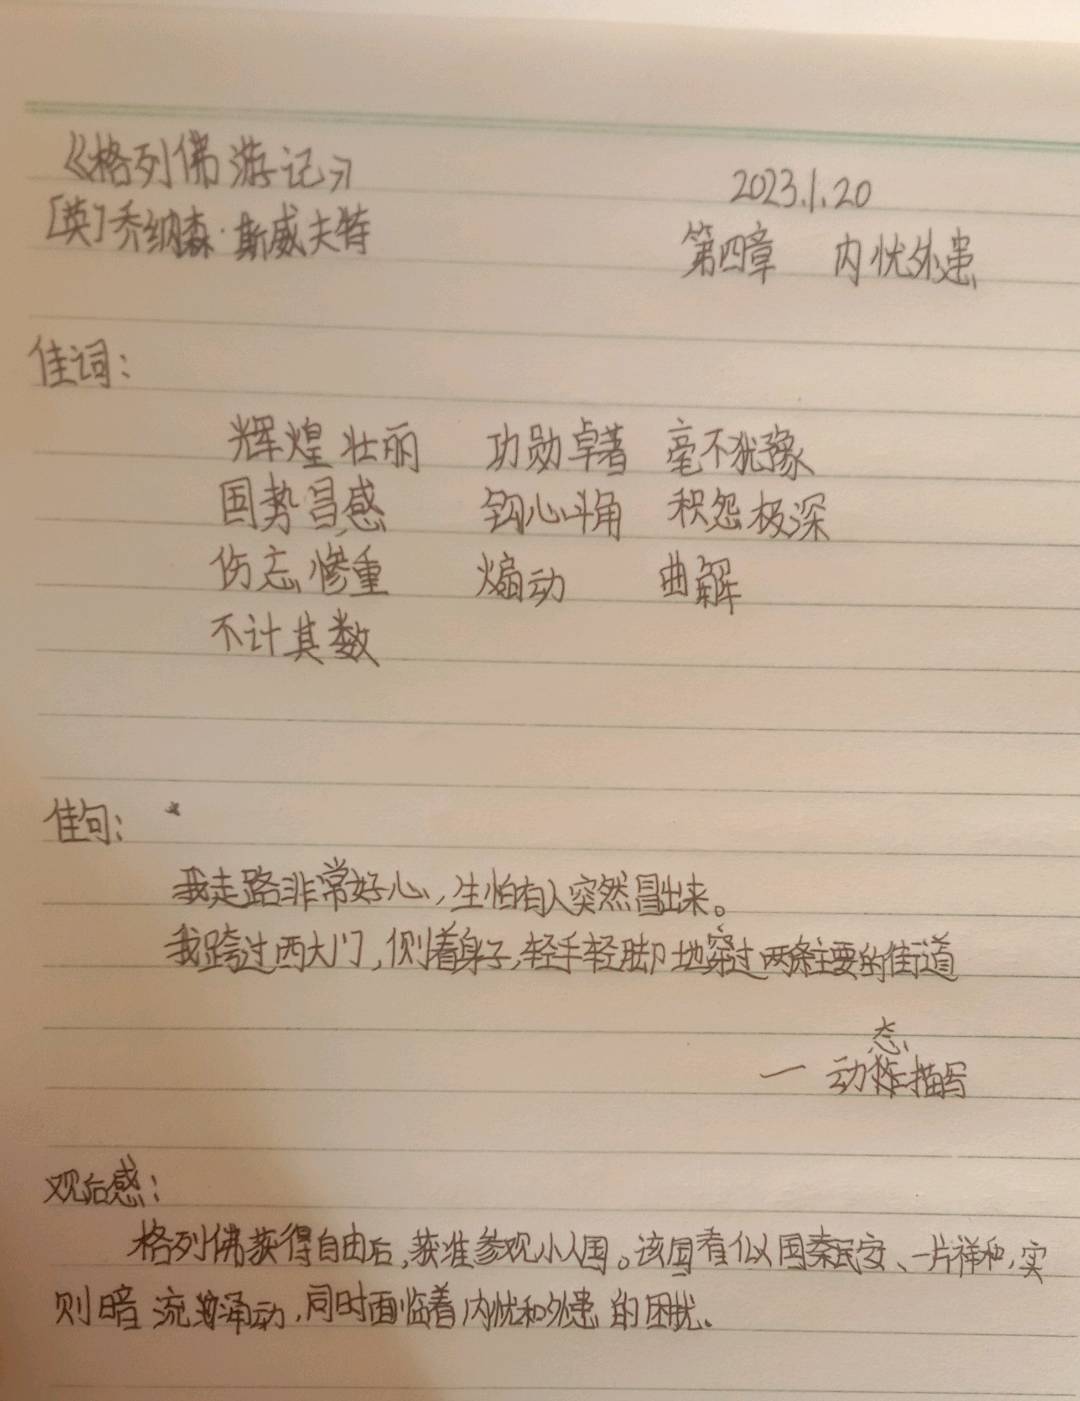 《格列佛游记》
2023.1.20
[英]乔纳森·斯威夫特
第四章 内忧外患
佳词:
辉煌壮丽 功勋卓著 毫不犹豫
国势昌盛 钩心斗角 积怨极深
伤亡惨重 煽动 曲解
不计其数
佳句:
我走路非常好心,生怕有人突然冒出来。
我跨过西大门,侧着身子,轻手轻脚地穿过两条主要的街道
— 动态描写
观后感:
格列佛获得自由后,获准参观小人国。该国看似国泰民安、一片祥和,实
则暗流涌动,同时面临着内忧和外患的困扰。